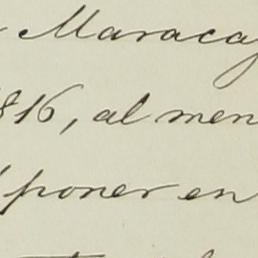 Maracay
816, al men
poner en